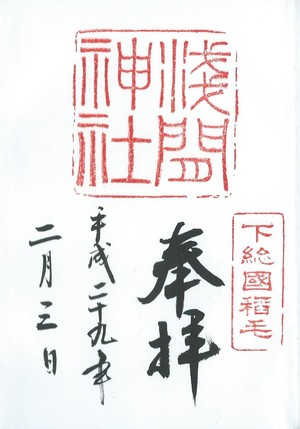 下総國稲毛
奉拝
浅間
神社
平成二十九年
二月三日